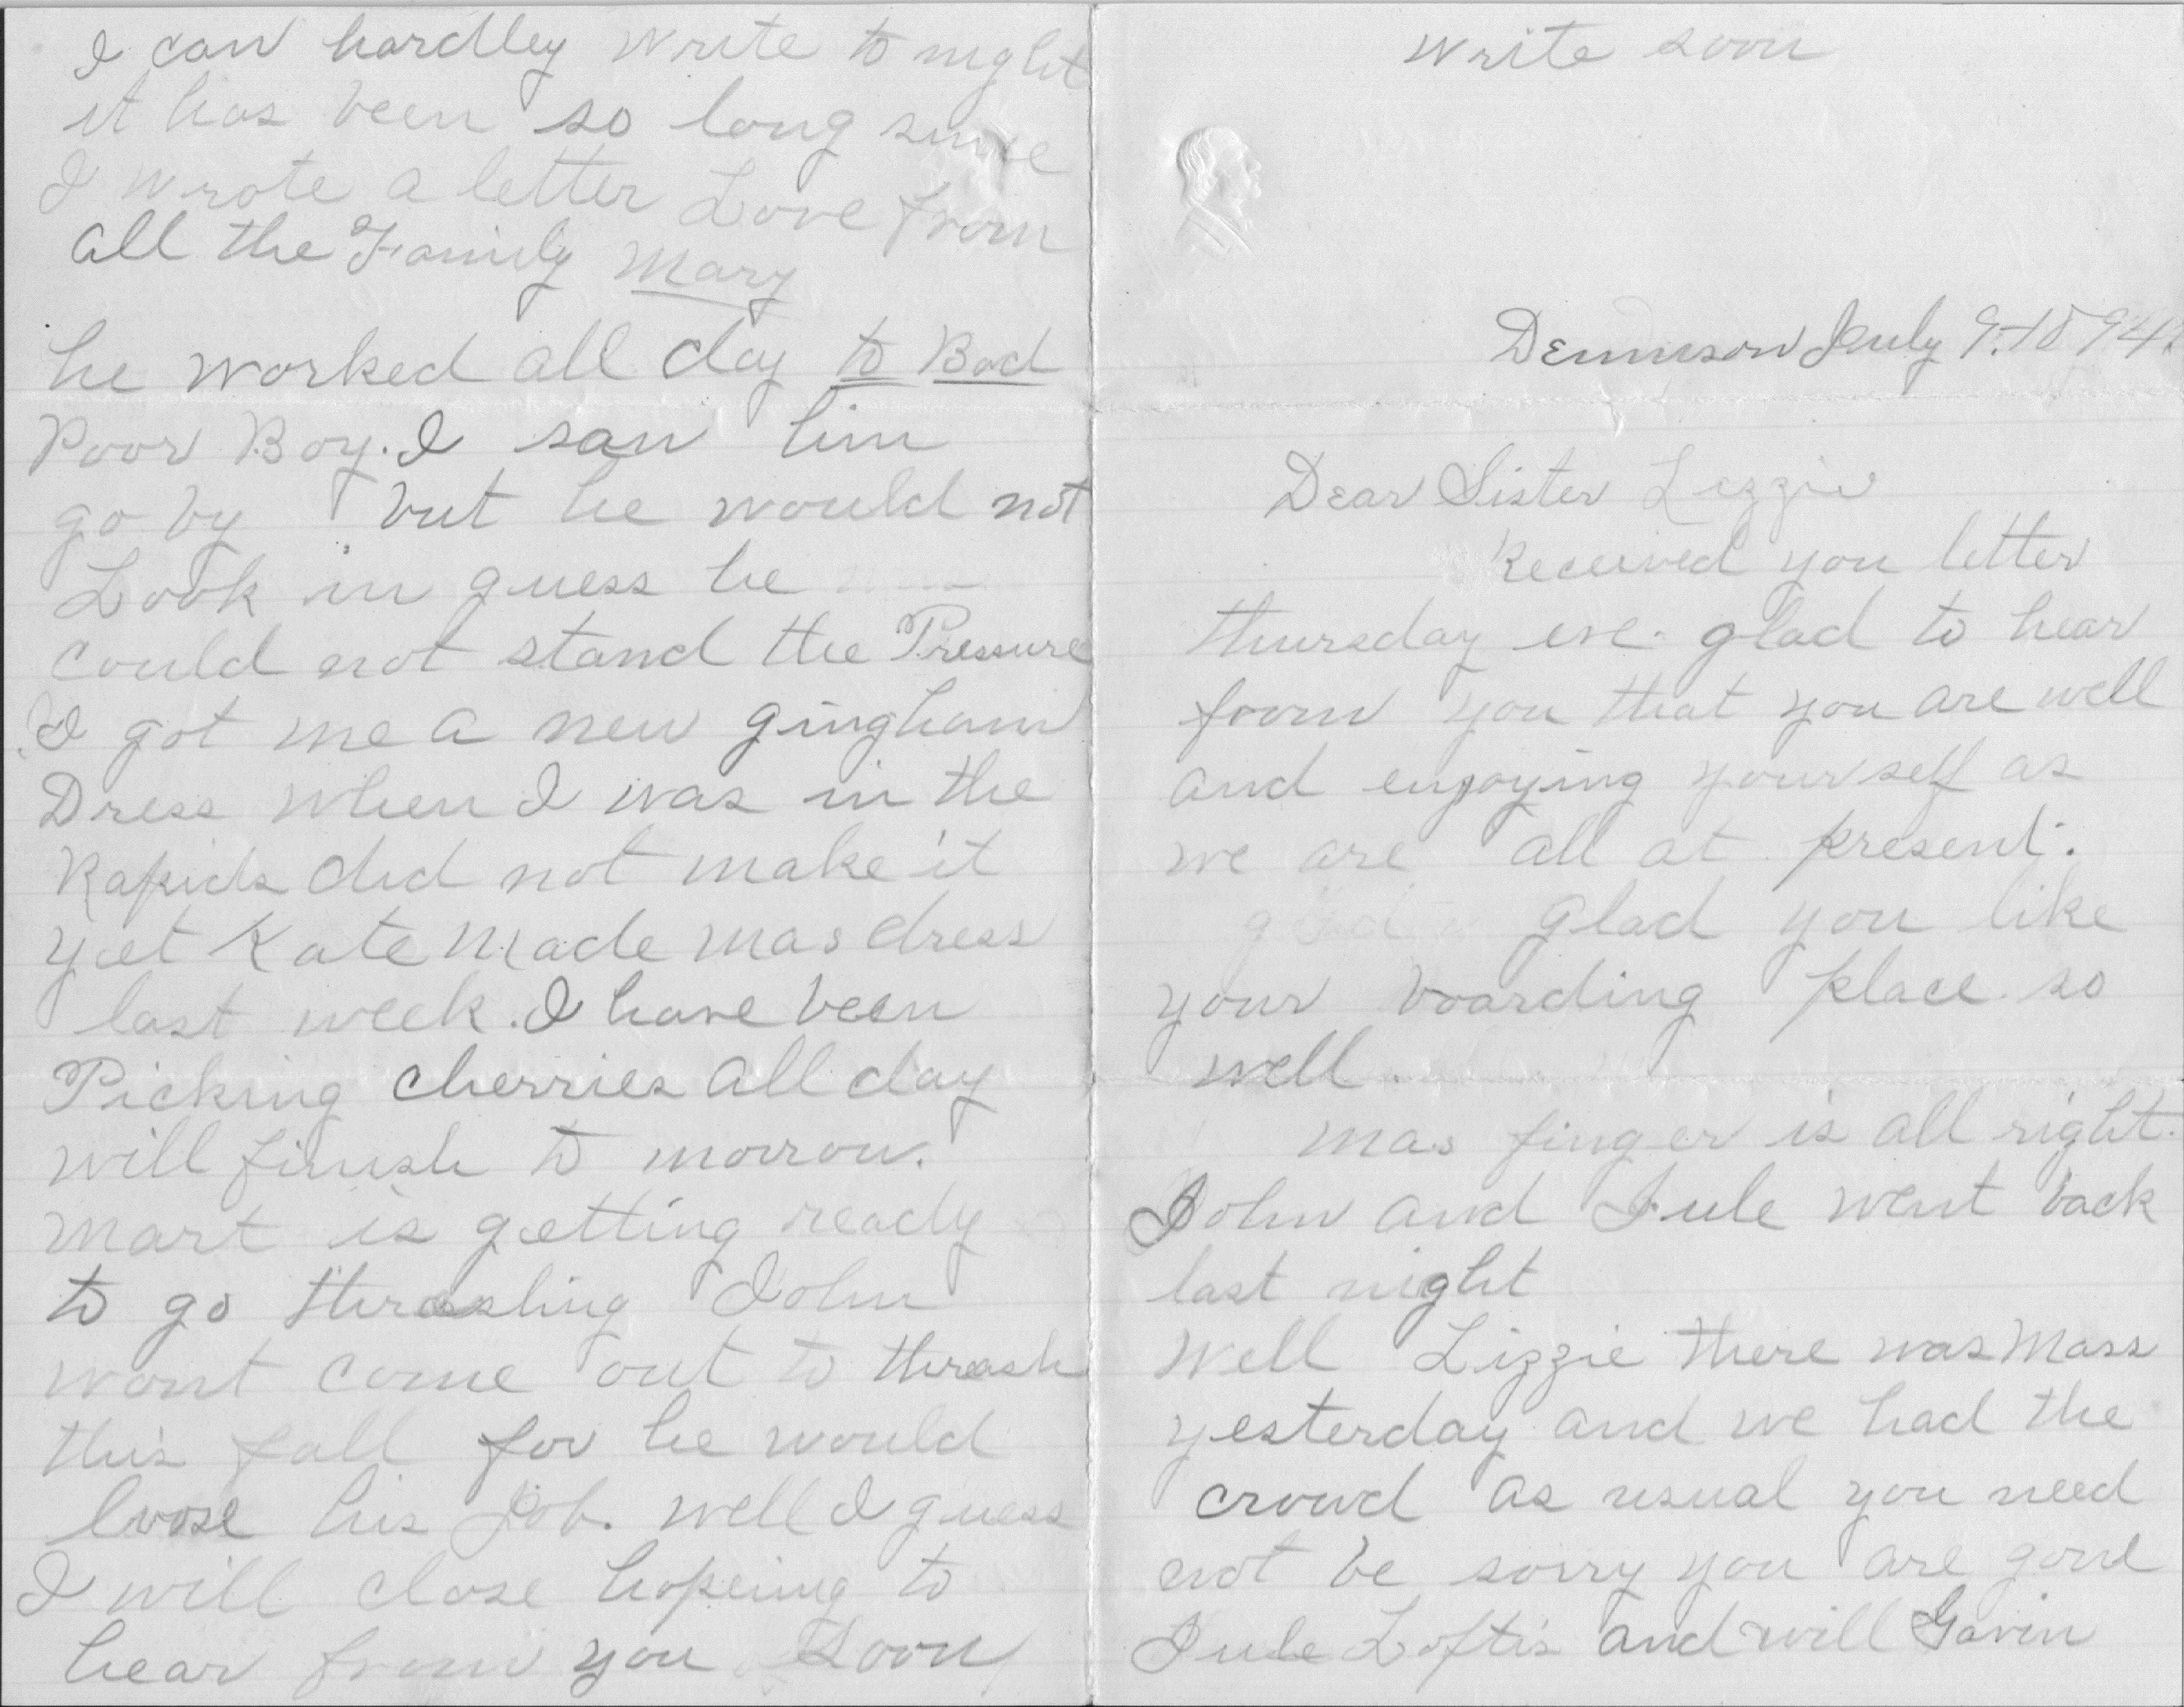 write soon
Dennison July 9. 1894.
Dear Sister Lizzie
Received you letter
thursday eve. glad to hear
from you that you are well
and enjoying yourself as
we are all at present.
glad you like
your boarding place so
well.
mas finger is all right.
John and Jule went back
last night
Well Lizzie there was Mass
yesterday and we had the
crowd as usual you need
not be sorry you are gone
Jule Loftis and will Gavin
I can hardley write to night
it has been so long since
I wrote a letter Love from
all the Family Mary
he worked all day to Bad
Poor Boy. I saw him
go by but he would not
Look in guess he
could not stand the Pressure
I got me a new gingham
Dress when I was in the
Rapids did not make it
yet Kate Made mas dress
last week. I have been
Picking cherries all day
will finish to morrow.
Mart is getting ready
to go thrashing John
wont come out to thrash
this fall for he would
loose his Job. well I guess
I will close hopeing to
hear from you Soon